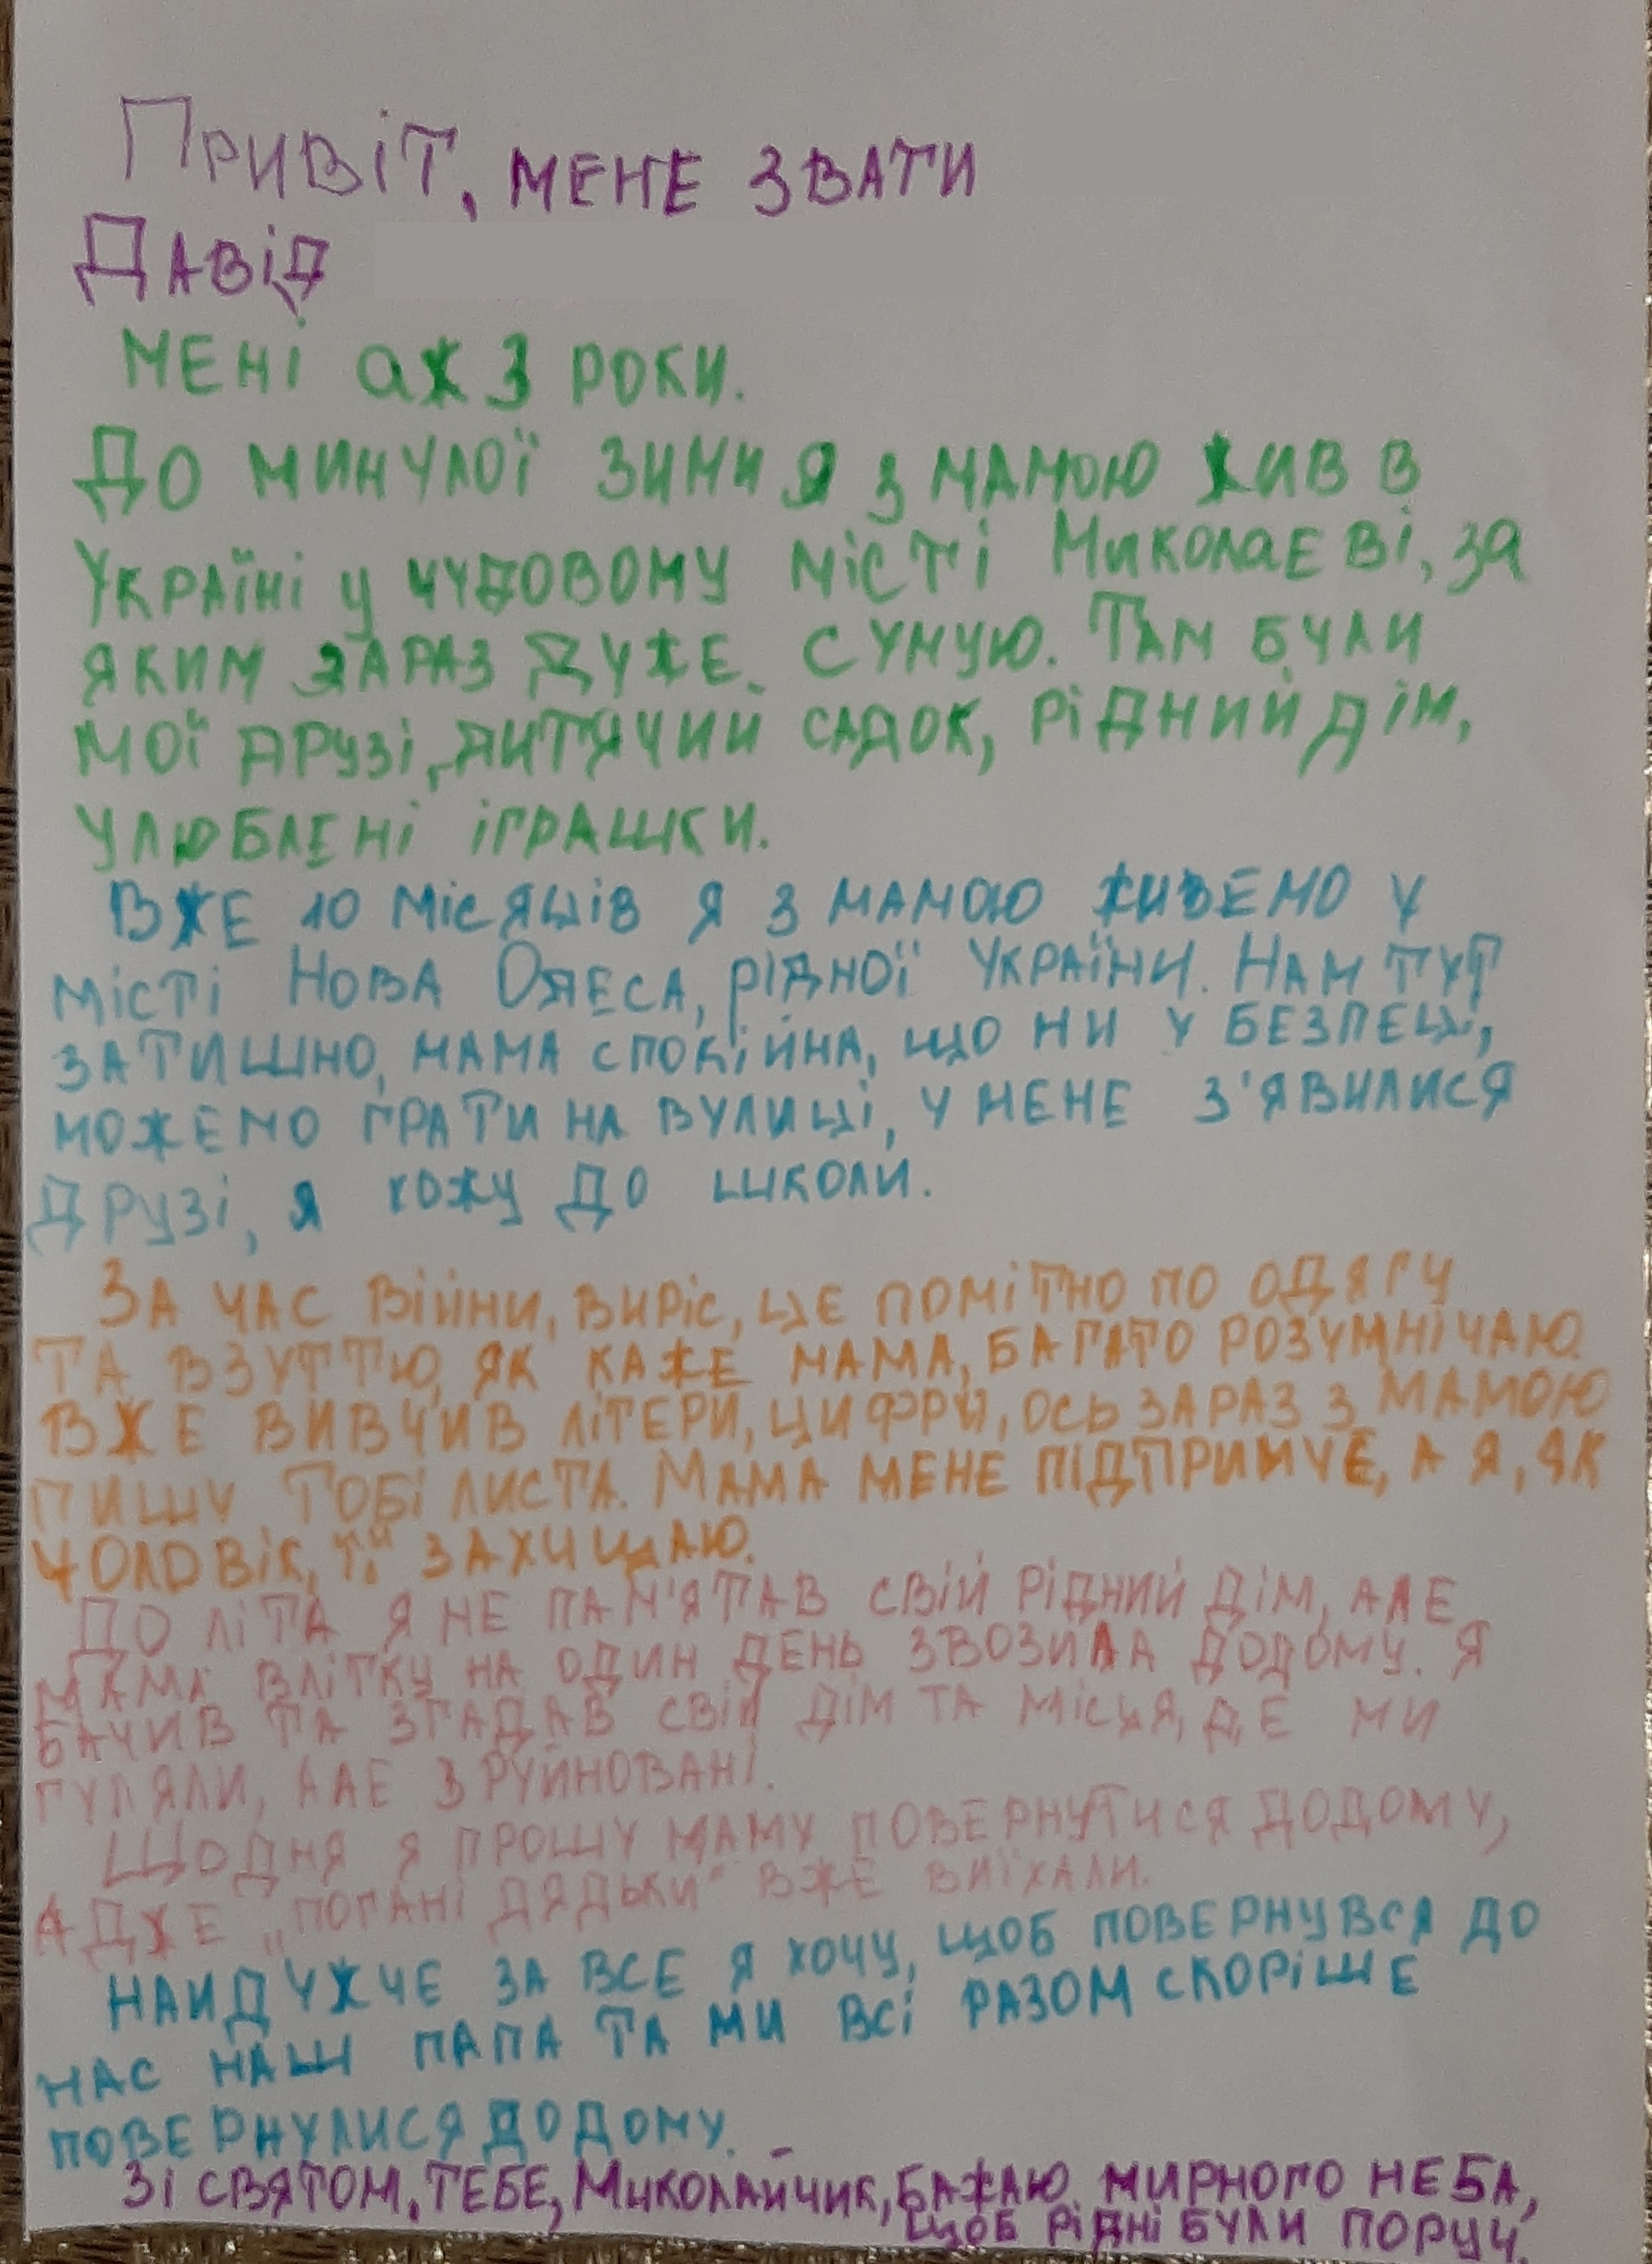 Привіт, мене звати
Давід
Мені аж 3 роки.
До минулої зими я з мамою жив в
Україні у чудовому місті Миколаєві, за
яким зараз дуже сумую. Там були
мої друзі, дитячий садок, рідний дім,
улюблені іграшки.
Вже 10 місяців я з мамою живемо у
місті Нова Одеса, рідної України. Нам тут
затишно, мама спокійна, що ми у безпеці,
можемо грати на вулиці, у мене з'явилися
друзі, я хожу до школи.
За час війни, виріс, це помітно по одягу
та взуттю, як каже мама, багато розумнічаю.
Вже вивчив літери, цифри, ось зараз з мамою
пишу тобі листа. Мама мене підтримує, а я, як
чоловік, її захищаю.
До літа я не пам'ятав свій рідний дім, але
мама влітку на один день звозила додому. Я
бачив та згадав свій дім та місця, де ми
гуляли, але зруйновані.
Щодня я прошу маму повернутися додому,
адже „погані дядьки" вже виїхали.
Найдужче за все я хочу, щоб повернувся до
нас наш папа та ми всі разом скоріше
повернулися додому.
Зі святом, тебе, Миколайчик, бажаю мирного неба,
щоб рідні були поруч